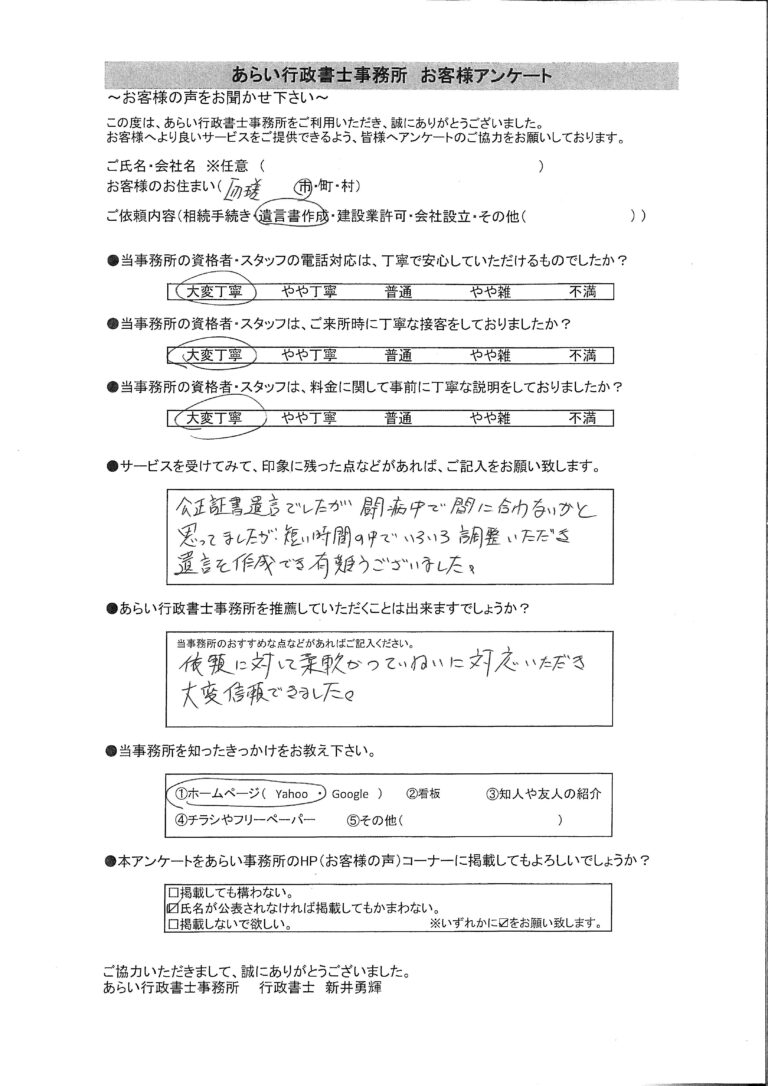 あらい行政書士事務所 お客様アンケート
～お客様の声をお聞かせ下さい～
この度は、あらい行政書士事務所をご利用いただき、誠にありがとうございました。
お客様へより良いサービスをご提供できるよう、皆様へアンケートのご協力をお願いしております。
ご氏名・会社名 ※任意 （ ）
お客様のお住まい（ 匝瑳 市・町・村）
ご依頼内容（相続手続き・遺言書作成・建設業許可・会社設立・その他（ ））
●当事務所の資格者・スタッフの電話対応は、丁寧で安心していただけるものでしたか？
大変丁寧 やや丁寧 普通 やや雑 不満
●当事務所の資格者・スタッフは、ご来所時に丁寧な接客をしておりましたか？
大変丁寧 やや丁寧 普通 やや雑 不満
●当事務所の資格者・スタッフは、料金に関して事前に丁寧な説明をしておりましたか？
大変丁寧 やや丁寧 普通 やや雑 不満
●サービスを受けてみて、印象に残った点などがあれば、ご記入をお願い致します。
公正証書遺言でしたが 闘病中で間に合わないかと
思ってましたが 短い時間の中でいろいろ調整いただき
遺言を作成でき有難うございました。
●あらい行政書士事務所を推薦していただくことは出来ますでしょうか？
当事務所のおすすめな点などがあればご記入ください。
依頼に対して柔軟かつていねいに対応いただき
大変信頼できました。
●当事務所を知ったきっかけをお教え下さい。
①ホームページ（ Yahoo ・ Google ） ②看板 ③知人や友人の紹介
④チラシやフリーペーパー ⑤その他（ ）
●本アンケートをあらい事務所のHP（お客様の声）コーナーに掲載してもよろしいでしょうか？
□掲載しても構わない。
☑氏名が公表されなければ掲載してもかまわない。
□掲載しないで欲しい。 ※いずれかに☑をお願い致します。
ご協力いただきまして、誠にありがとうございました。
あらい行政書士事務所 行政書士 新井勇輝